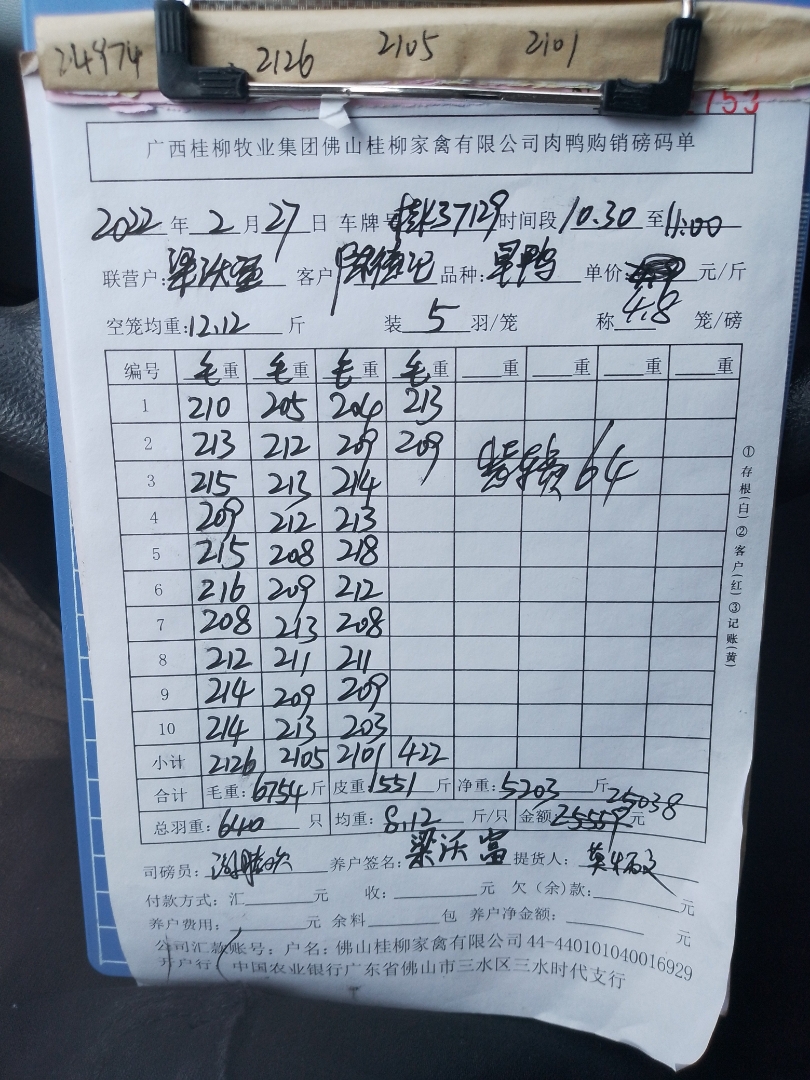 24974 2126 2105 2101
153
广西桂柳牧业集团佛山桂柳家禽有限公司肉鸭购销磅码单
2022 年 2 月 27 日 车牌号 37129 时间段 10.30 至 11:00
联营户: 梁沃富 客户 品种: 旱鸭 单价: 元/斤
空笼均重: 12.12 斤 装 5 羽/笼 称 笼/磅
4.8
编号 毛重 毛重 毛重 毛重 重 重 重 重
1 210 205 204 213
2 213 212 209 209
3 215 213 214
64
4 209 212 213
5 215 208 218
6 216 209 212
7 208 213 208
8 212 211 211
9 214 209 209
10 214 213 203
小计 2126 2105 2101 422
合计 毛重: 6754 斤 皮重: 1551 斤 净重: 5203 斤
25038
总羽重: 640 只 均重: 8.12 斤/只 金额: 25559 元
司磅员: 养户签名: 梁沃富 提货人:
付款方式: 汇 元 收: 元 欠(余)款: 元
养户费用: 元 余料 包 养户净金额: 元
公司汇款账号: 户名: 佛山桂柳家禽有限公司 44-440101040016929
开户行: 中国农业银行广东省佛山市三水区三水时代支行
①存根(白)②客户(红)③记账(黄)